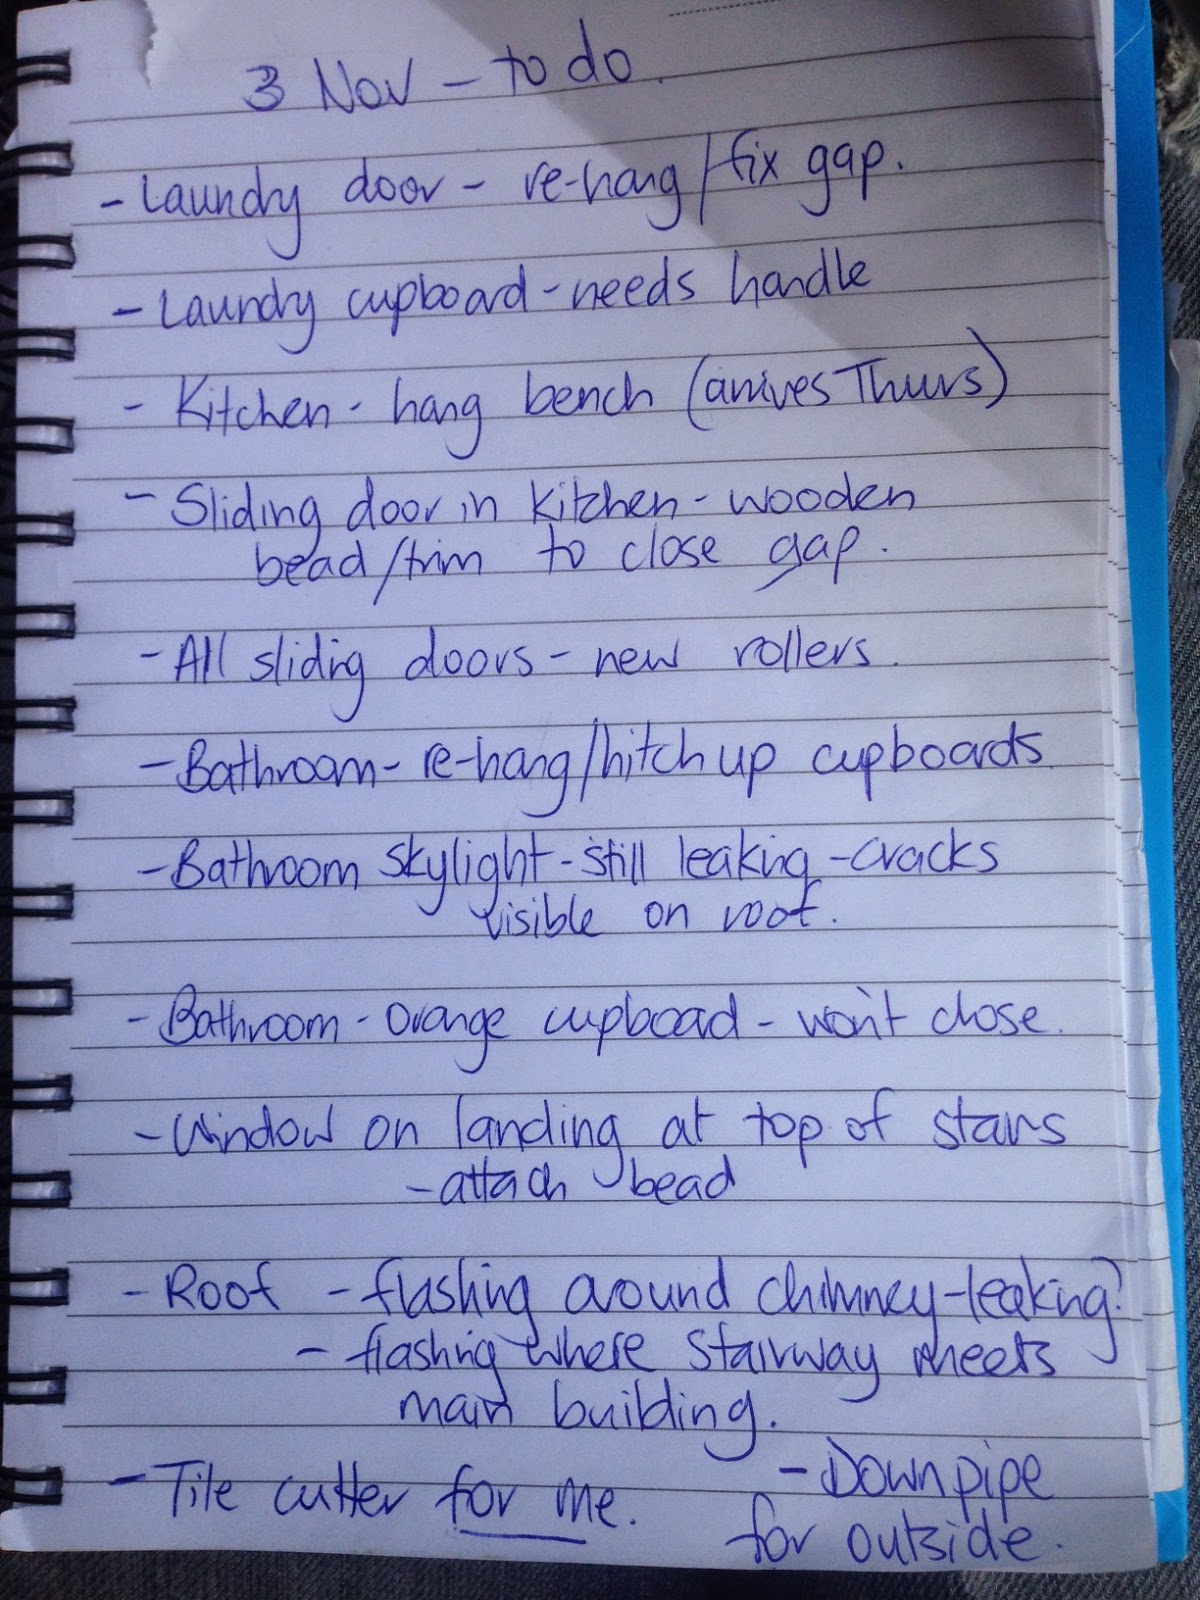 3 Nov - to do.
- Laundry door - re-hang/fix gap.
- Laundry cupboard - needs handle
- Kitchen - hang bench (arrives Thurs)
- Sliding door in kitchen - wooden
bead/trim to close gap.
- All sliding doors - new rollers.
- Bathroom - re-hang/hitch up cupboards
- Bathroom skylight - still leaking - cracks
visible on roof.
- Bathroom - orange cupboard - won't close.
- Window on landing at top of stairs
- attach bead
- Roof - flashing around chimney - leaking?
- flashing where stairway meets
main building.
- Tile cutter for me.
- Downpipe
for outside.